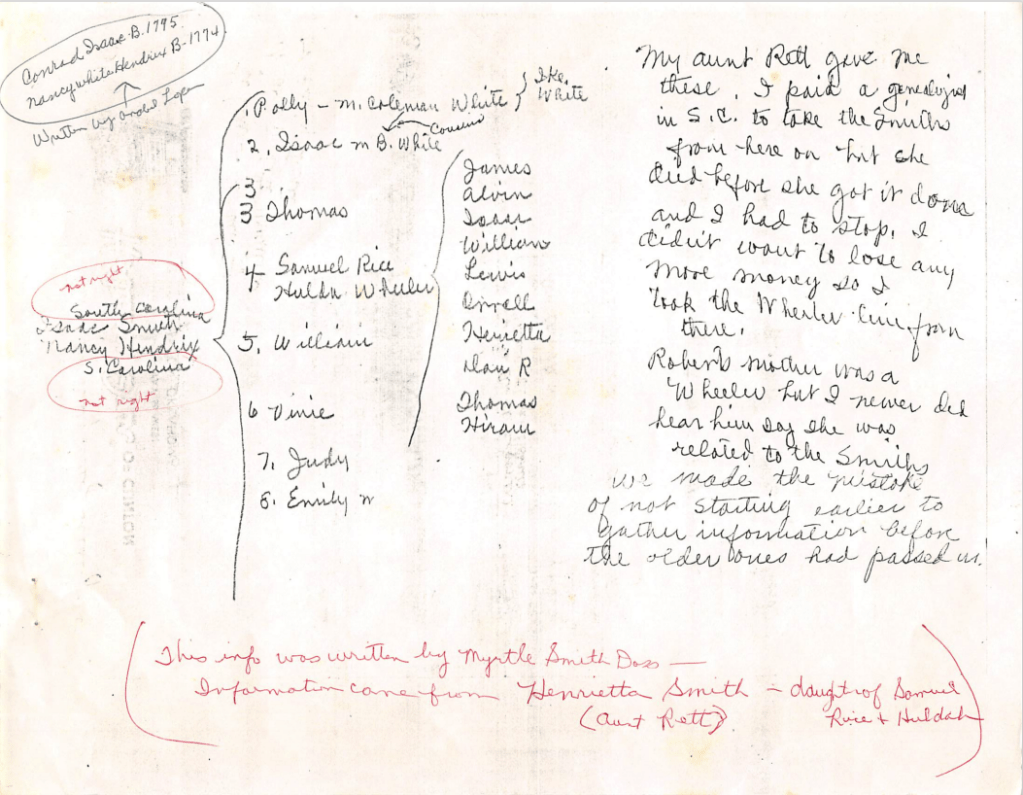 Conrad Isaac B. 1795
Nancy White Hendrix B-1774
Written by
1. Polly - m. Coleman White } Ike White
Cousins
2. Isaac m B. White
3
3 Thomas
4 Samuel Rice
Hulda Wheeler
5. William
6 Vinie
7. Judy
8. Emily m
not right
South Carolina
Isaac Smith
Nancy Hendrix
S. Carolina
not right
James
Alvin
Isaac
William
Lewis
Orrell
Henrietta
Dan R
Thomas
Hiram
My aunt Rett gave me
these. I paid a genealogist
in S.C. to take the Smiths
from here on but she
died before she got it done
and I had to stop. I
didn't want to lose any
more money so I
took the Wheeler line from
there.
Robert's mother was a
Wheeler but I never did
hear him say she was
related to the Smiths
we made the mistake
of not starting earlier to
gather information before
the older ones had passed on.
OF CLINTON
This info was written by Myrtle Smith Doss —
Information came from Henrietta Smith - daught of Samuel
(Aunt Rett) Rice & Huldah